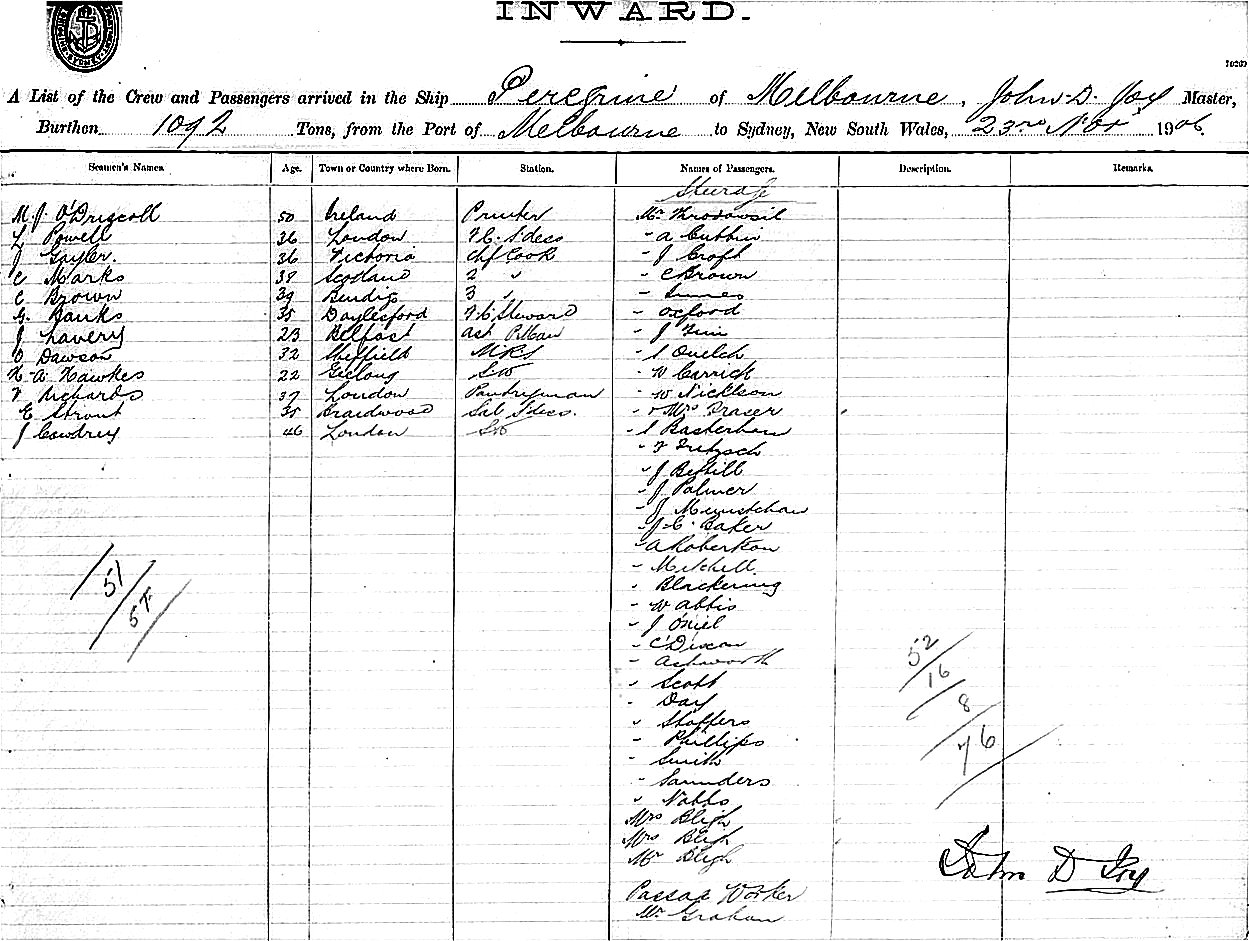 INWARD.
10269
A List of the Crew and Passengers arrived in the Ship Peregrine of Melbourne, John D. Joy Master,
Burthen 1092 Tons, from the Port of Melbourne to Sydney, New South Wales, 23rd Nov 1906.
Seamen's Names. Age. Town or Country where Born. Station. Names of Passengers. Description. Remarks.
M J. O'Driscoll 50 Ireland Printer Mr
L Powell 36 London F.C. S'dess - A Cubbin
J Gayler. 36 Victoria Chf Cook - J Croft
C Marks 38 Scotland 2 " - C Brown
C Brown 39 Bendigo 3 " - Innes
G. Banks 35 Daylesford F.C Steward - Oxford
J Lavery 23 Belfast ast P.Man - J
O Dawson 32 Sheffield MRS - S Quelch
H. A Hawkes 22 Geelong Sto - W Carrick
F Richards 37 London Pantryman - W Nicklson
E Strout 35 Braidwood Sal S'dess. - Mrs Fraser
J Cowdrey 46 London Sto - S Baskerham
- F Fritzsch
- J Bethill
- J Palmer
- J
- J. C. Baker
- A Robertson
- Mitchell
- Blackening
51 - W Abbis
54 - J Oniel
52 - C Dixon
- Ashworth
16 - Scott
8 - Day
- Stoffers
76 - Phillips
- Smith
- Saunders
- Nabbs
Mrs Bligh
Mrs Bligh
Mr Bligh
John D Joy
Passage Worker
Mr Graham